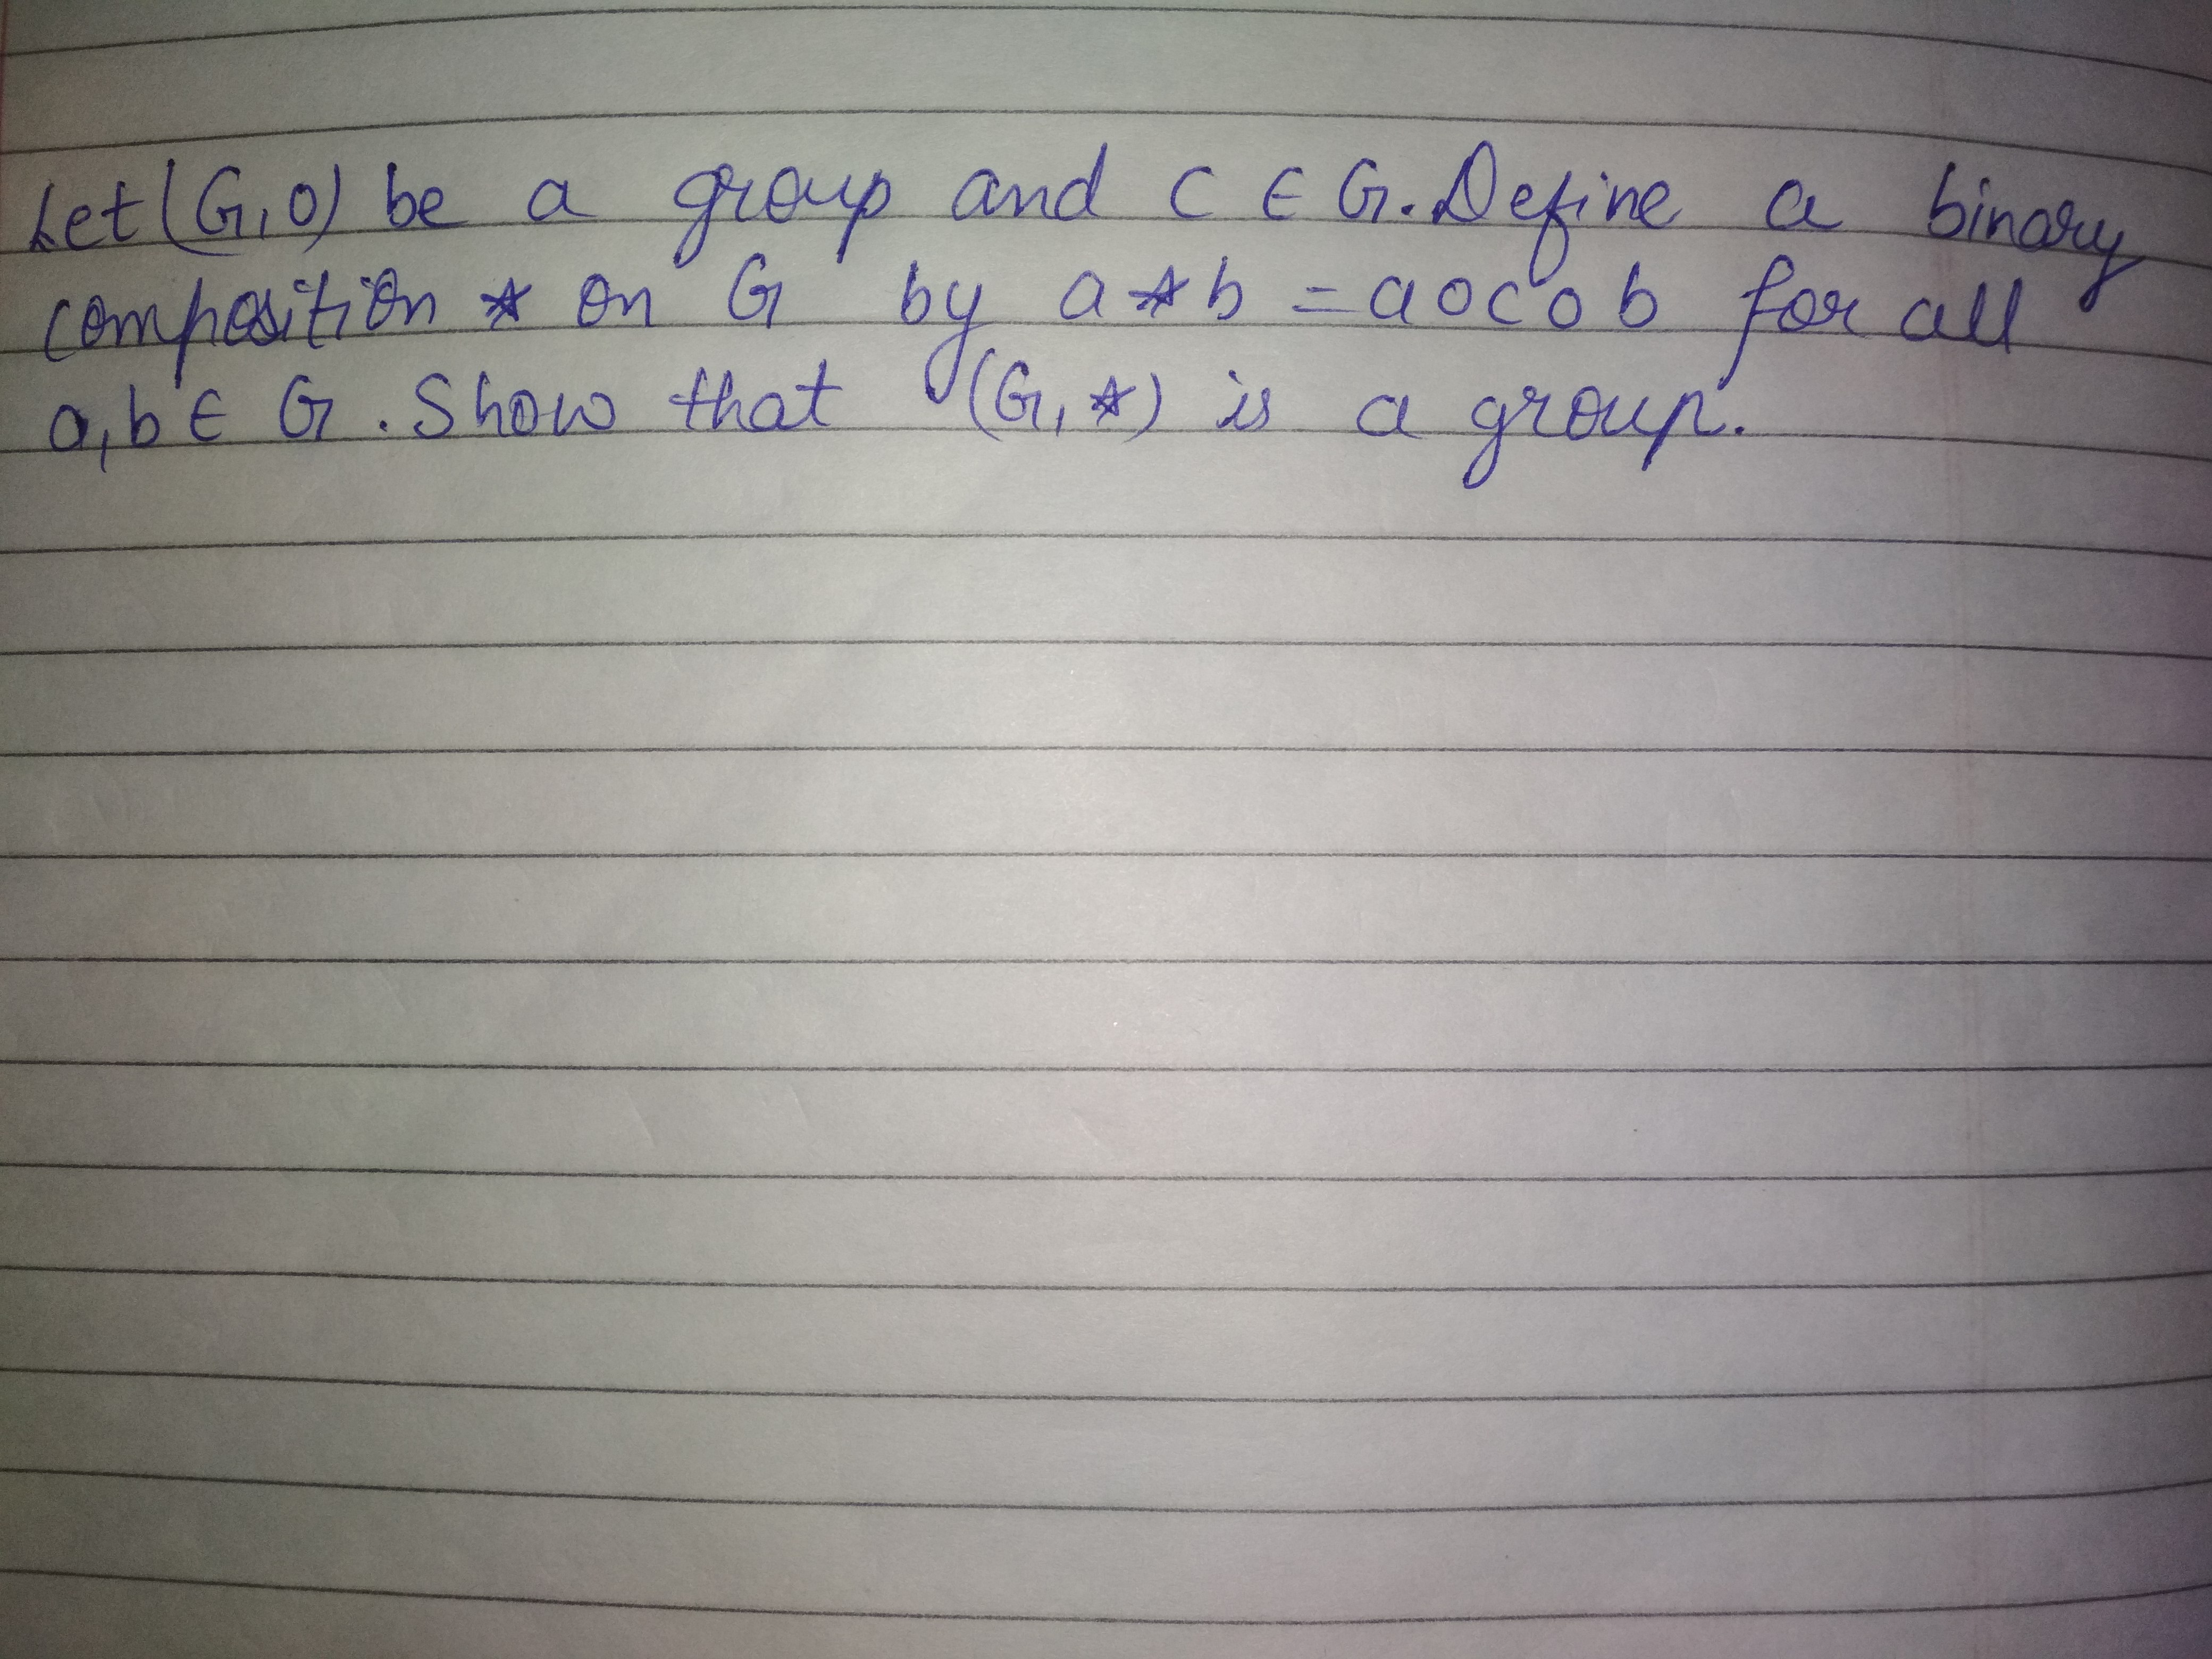 Let (G,o) be a group and c ∈ G. Define a binary
composition * on G by a * b = a o c o b for all
a,b ∈ G. Show that (G,*) is a group.